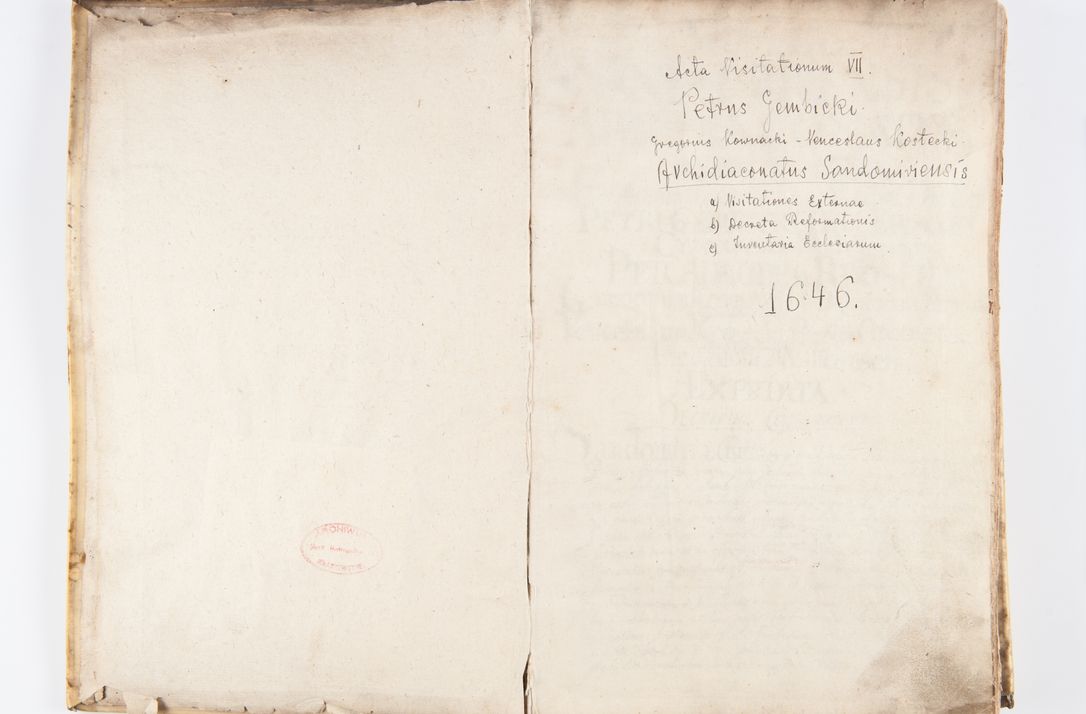 Acta Visitationum VII.
Petrus Gembicki.
Gregorius Kownacki - Venceslaus Kostecki.
Archidiaconatus Sandomiriensis
a) Visitationes Externae
b) Decreta Reformationis
c) Inventaria Ecclesiarum.
1646.